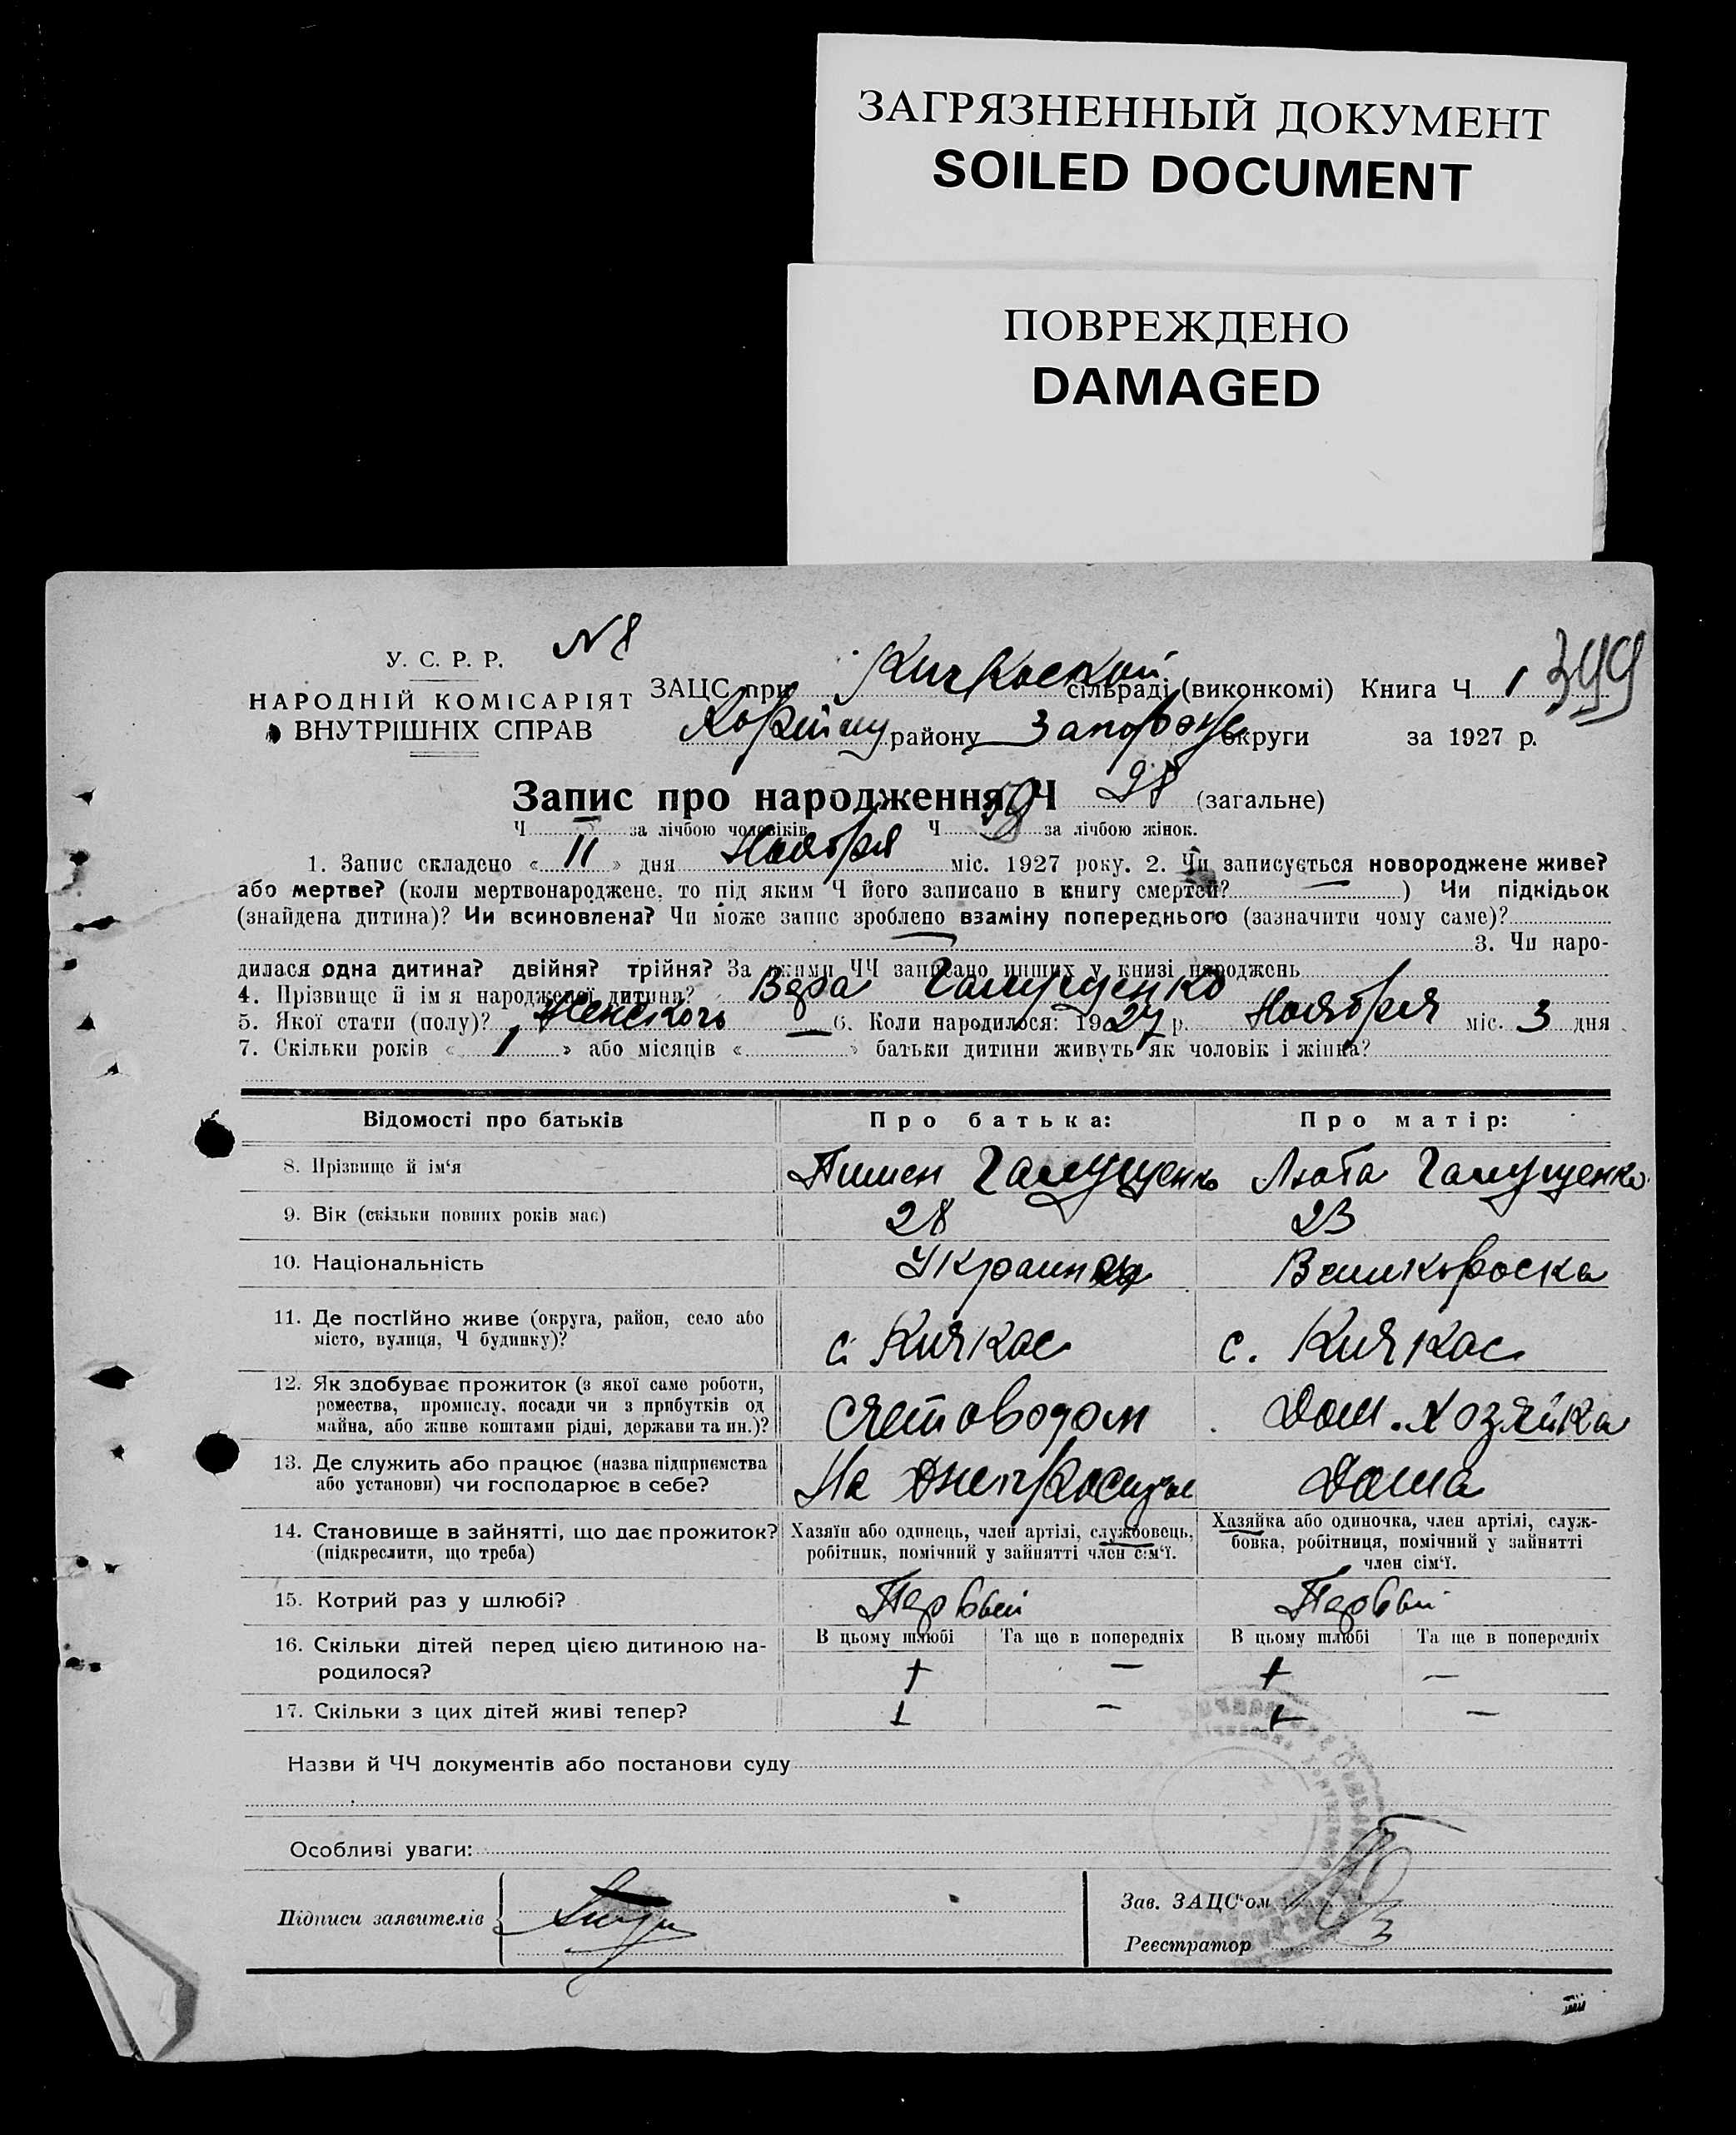 ЗАГРЯЗНЕННЫЙ ДОКУМЕНТ
SOILED DOCUMENT
ПОВРЕЖДЕНО
DAMAGED
N 8
У. С. Р. Р.
НАРОДНІЙ КОМІСАРІЯТ
ВНУТРІШНІХ СПРАВ
ЗАЦС при Кичкаской сільраді (виконкомі) Книга Ч 1 399
району Запорож округи за 1927 р.
Запис про народження Ч 98 (загальне)
Ч за лічбою чоловіків Ч за лічбою жінок.
1. Запис складено « 11 » дня Ноября міс. 1927 року. 2. Чи записується новороджене живе?
або мертве? (коли мертвонароджене, то під яким Ч його записано в книгу смертей? — ) Чи підкідьок
(знайдена дитина)? Чи всиновлена? Чи може запис зроблено взаміну попереднього (зазначити чому саме)?
3. Чи наро-
дилася одна дитина? двійня? трійня? За якими ЧЧ записано инших у книзі народжень
4. Прізвище й ім я народженої дитини? Вера Галущенко
5. Якої стати (полу)? Женского — 6. Коли народилося: 1927 р. Ноября міс. 3 дня
7. Скільки років « 1 » або місяців « » батьки дитини живуть як чоловік і жінка?
Відомості про батьків Про батька: Про матір:
8. Прізвище й ім'я Пимен Галущенко Галущенко
9. Вік (скільки повних років має) 28 23
10. Національність Украинец Великороска
11. Де постійно живе (округа, район, село або
місто, вулиця, Ч будинку)? с. Кичкас с. Кичкас
12. Як здобуває прожиток (з якої саме роботи,
ремества, промислу, посади чи з прибутків од
майна, або живе коштами рідні, держави та ин.)? Счетоводом Дом. хозяйка
13. Де служить або працює (назва підприємства
або установи) чи господарює в себе? На Дома
14. Становище в зайнятті, що дає прожиток?
(підкреслити, що треба)
Хазяїн або одинець, член артілі, службовець,
робітник, помічний у зайнятті член сім'ї.
Хазяйка або одиночка, член артілі, служ-
бовка, робітниця, помічний у зайнятті
член сім'ї.
15. Котрий раз у шлюбі? Первый Первый
16. Скільки дітей перед цією дитиною на-
родилося?
В цьому шлюбі Та ще в попередніх В цьому шлюбі Та ще в попередніх
1 — 1 —
17. Скільки з цих дітей живі тепер? 1 — 1 —
Назви й ЧЧ документів або постанови суду
Особливі уваги:
Підписи заявителів
Зав. ЗАЦС'ом
Реєстратор